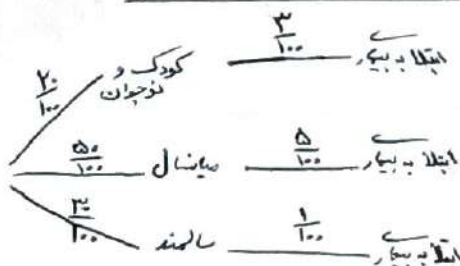 ۲۰/۱۰۰ کودک و نوجوان ۳/۱۰۰ ابتلا به بیماری
۵۰/۱۰۰ میانسال ۵/۱۰۰ ابتلا به بیماری
۳۰/۱۰۰ سالمند ۱/۱۰۰ ابتلا به بیماری